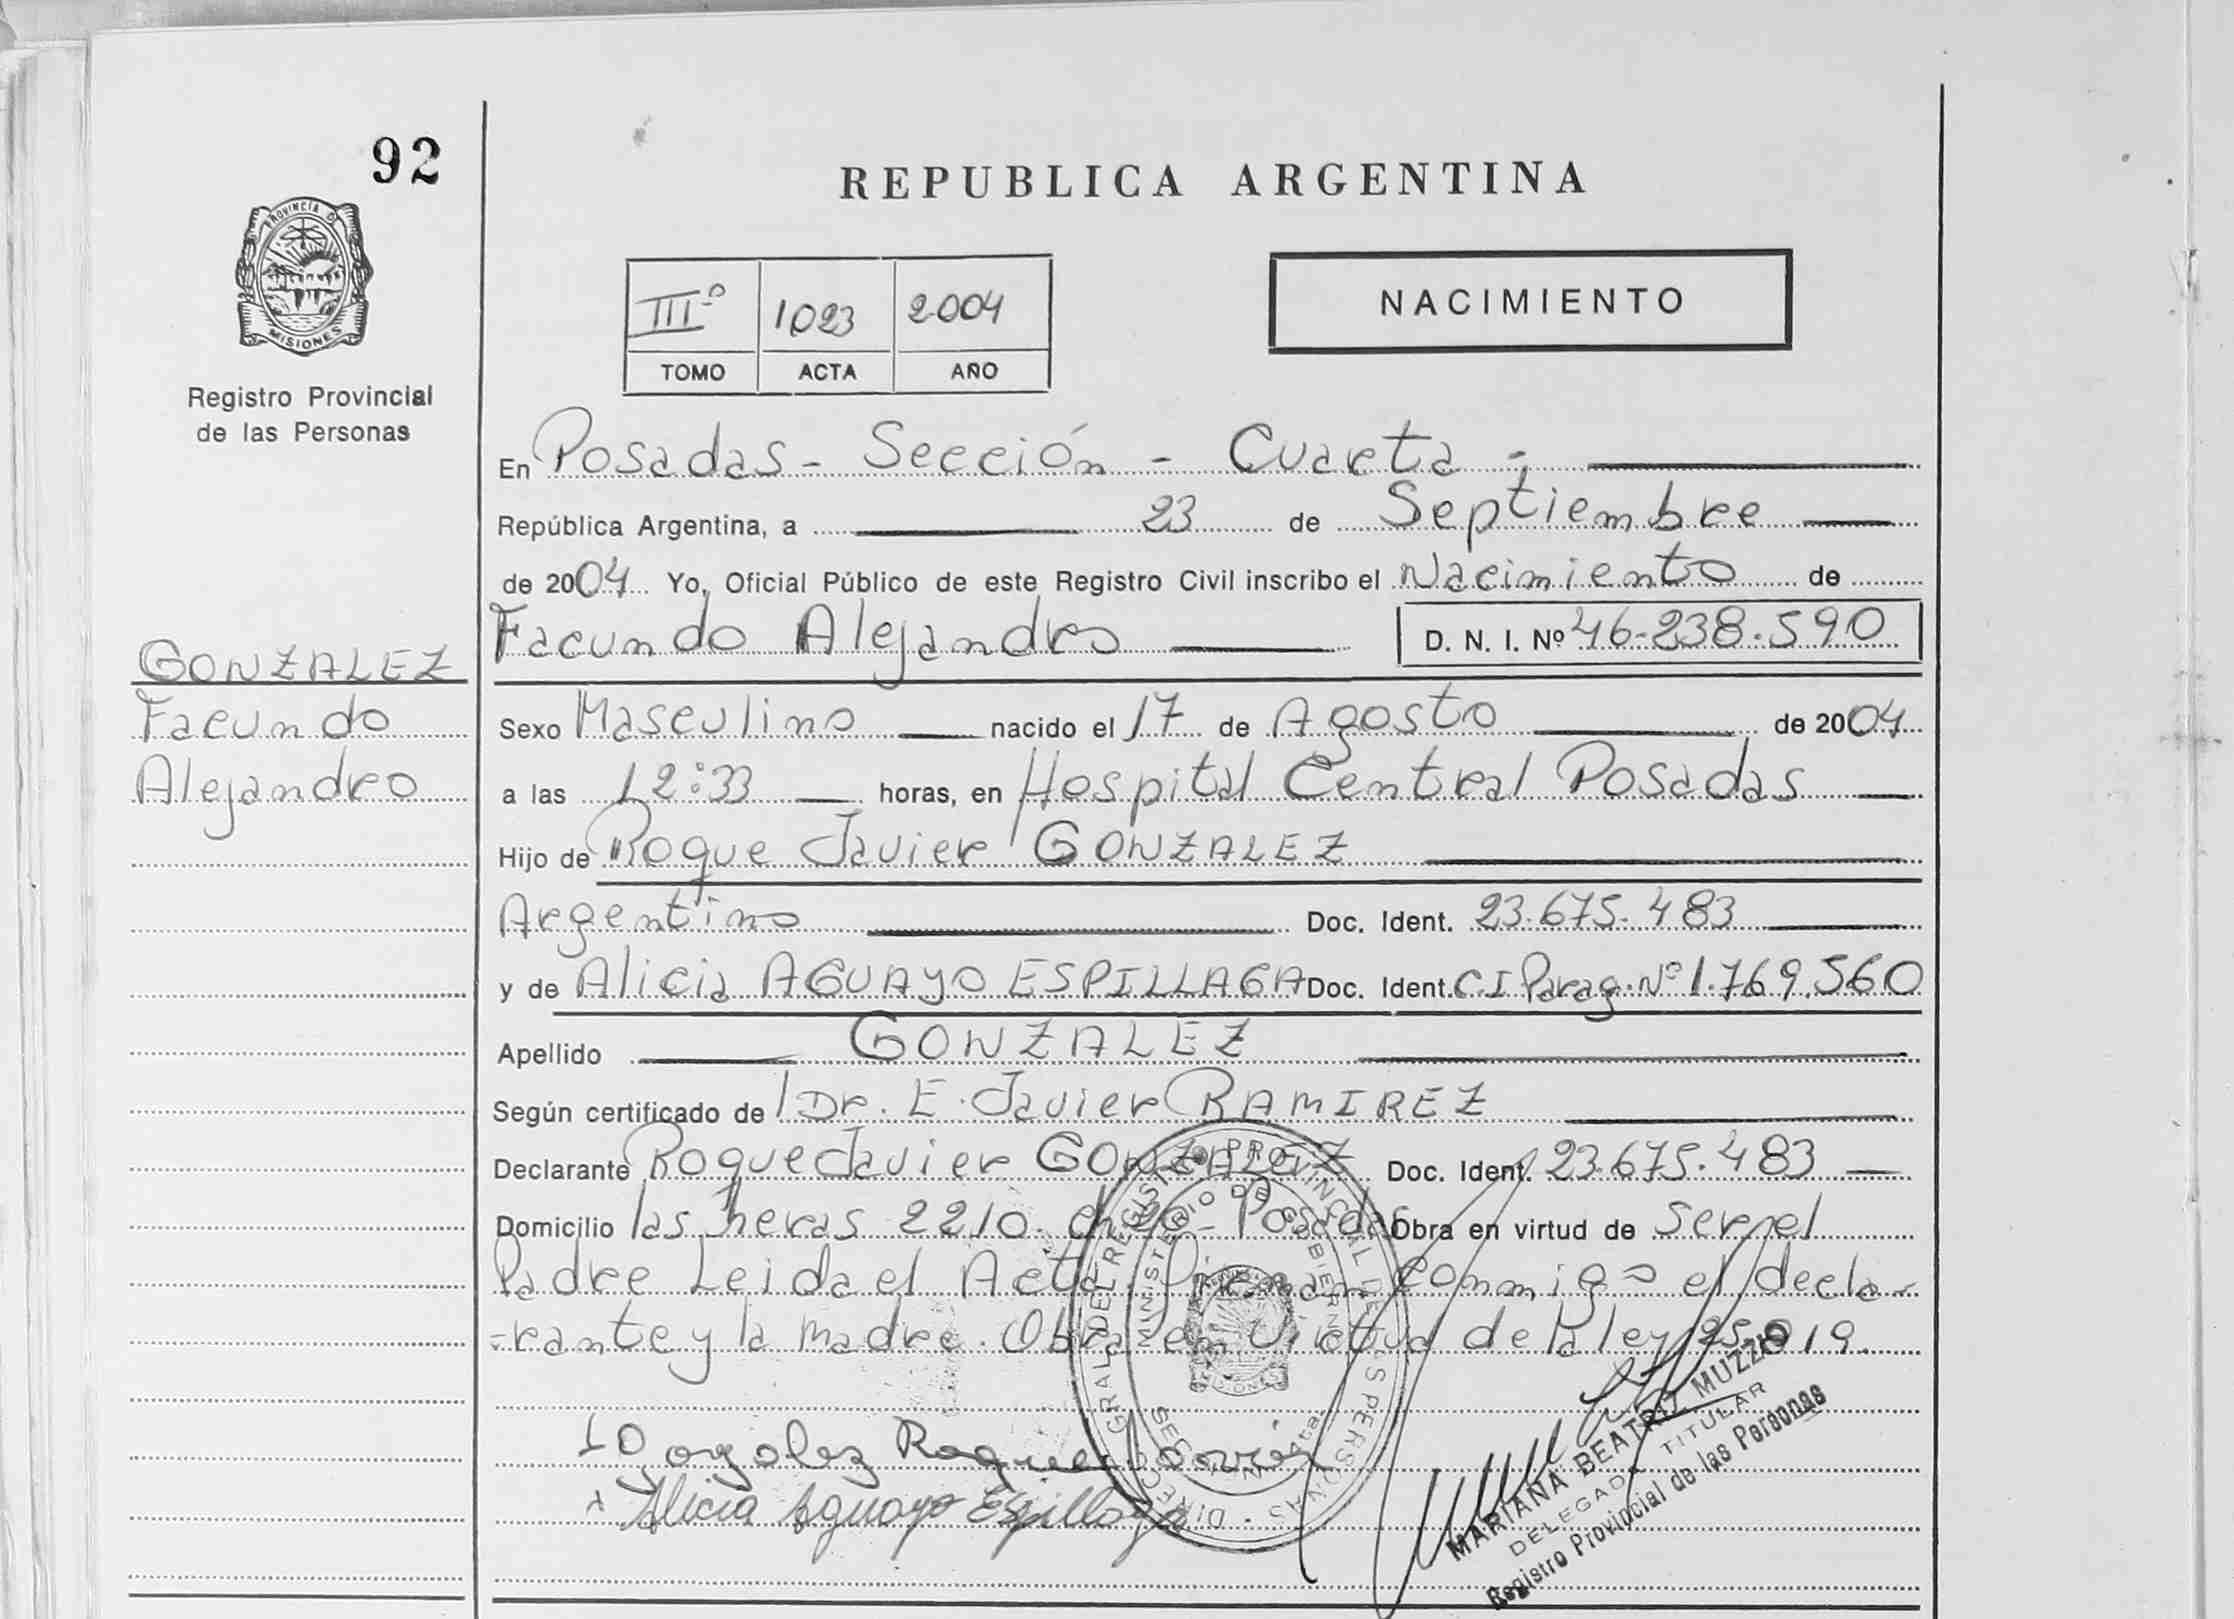 92
REPUBLICA ARGENTINA
PROVINCIA D MISIONES
Registro Provincial
de las Personas
IIIº 1023 2004
TOMO ACTA AÑO
NACIMIENTO
En Posadas - Sección - Cuarta -
República Argentina, a 23 de Septiembre
de 2004 Yo, Oficial Público de este Registro Civil inscribo el Nacimiento de
Facundo Alejandro D. N. I. Nº 46-238-590
GONZALEZ
Facundo
Alejandro
Sexo Masculino nacido el 17 de Agosto de 2004
a las 12:33 horas, en Hospital Central Posadas
Hijo de Roque Javier GONZALEZ
Argentino Doc. Ident. 23.675.483
y de Alicia AGUAYO ESPILLAGA Doc. Ident. C I Parag. Nº 1.769.560
Apellido GONZALEZ
Según certificado de Dr. E. Javier RAMIREZ
Declarante Roque Javier GONZALEZ Doc. Ident. 23.675.483
Domicilio las heras 2210 - Posadas Obra en virtud de ser el
Padre Leida el Acta Firman conmigo el decla-
-rante y la madre. Obra en virtud de la ley 25.819.
Gonzalez Roque Javier
x Alicia Aguayo Espillaga
DIREC GRAL DEL REGISTRO PROVINCIAL DE LAS PERSONAS
MINISTERIO DE GOBIERNO
MISIONES
MARIANA BEATRIZ MUZZIO
DELEGADA TITULAR
Registro Provincial de las Personas